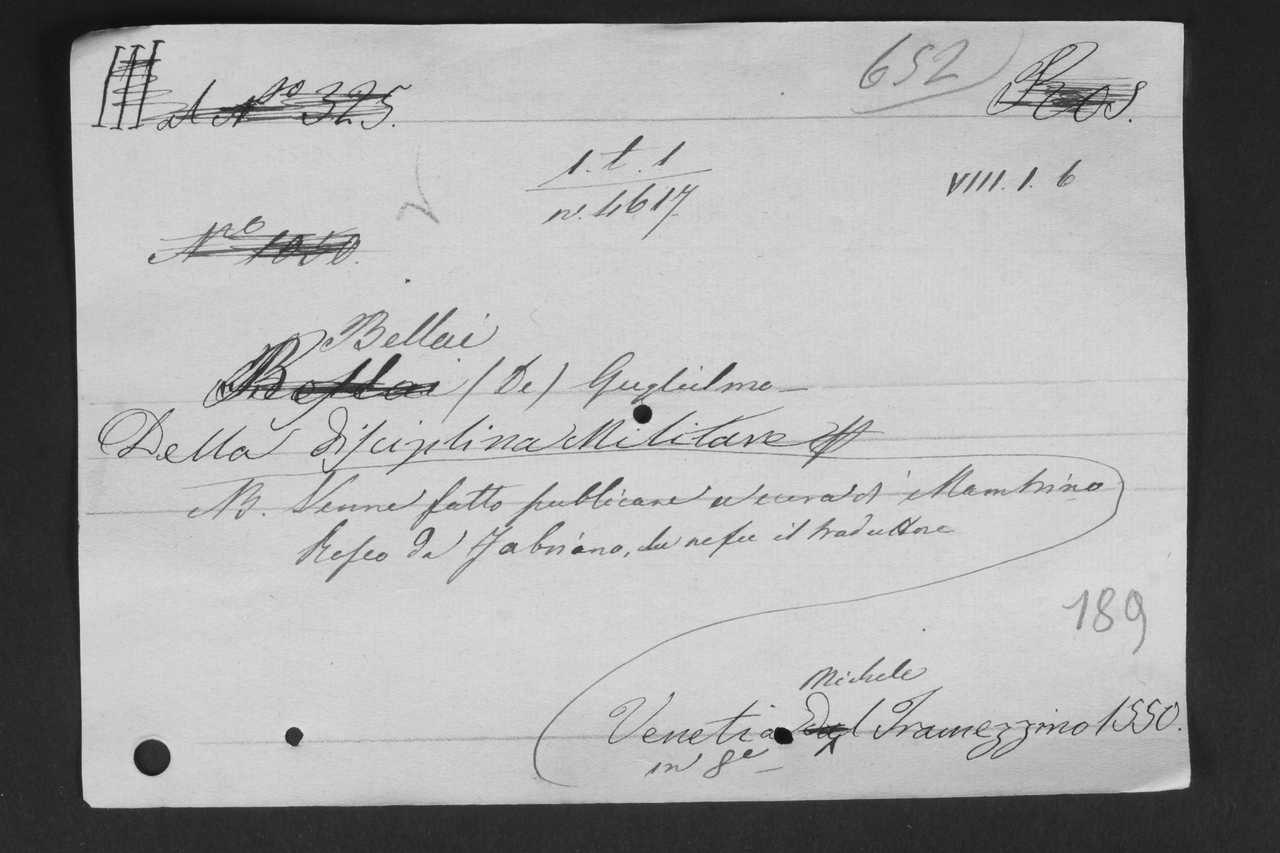 III
A Nro 325.
652
Ros.
1. t. 1
n. 4617
VIII. 1. 6
Nro 1050.
Bellai
(De) Guglielmo
Della disciplina Militare
NB. Venne fatto publicare a cura di Mambrino
Roseo da Fabriano, che ne fu il traduttore
189
Michele
Venetia Tramezzino 1550.
in 8e